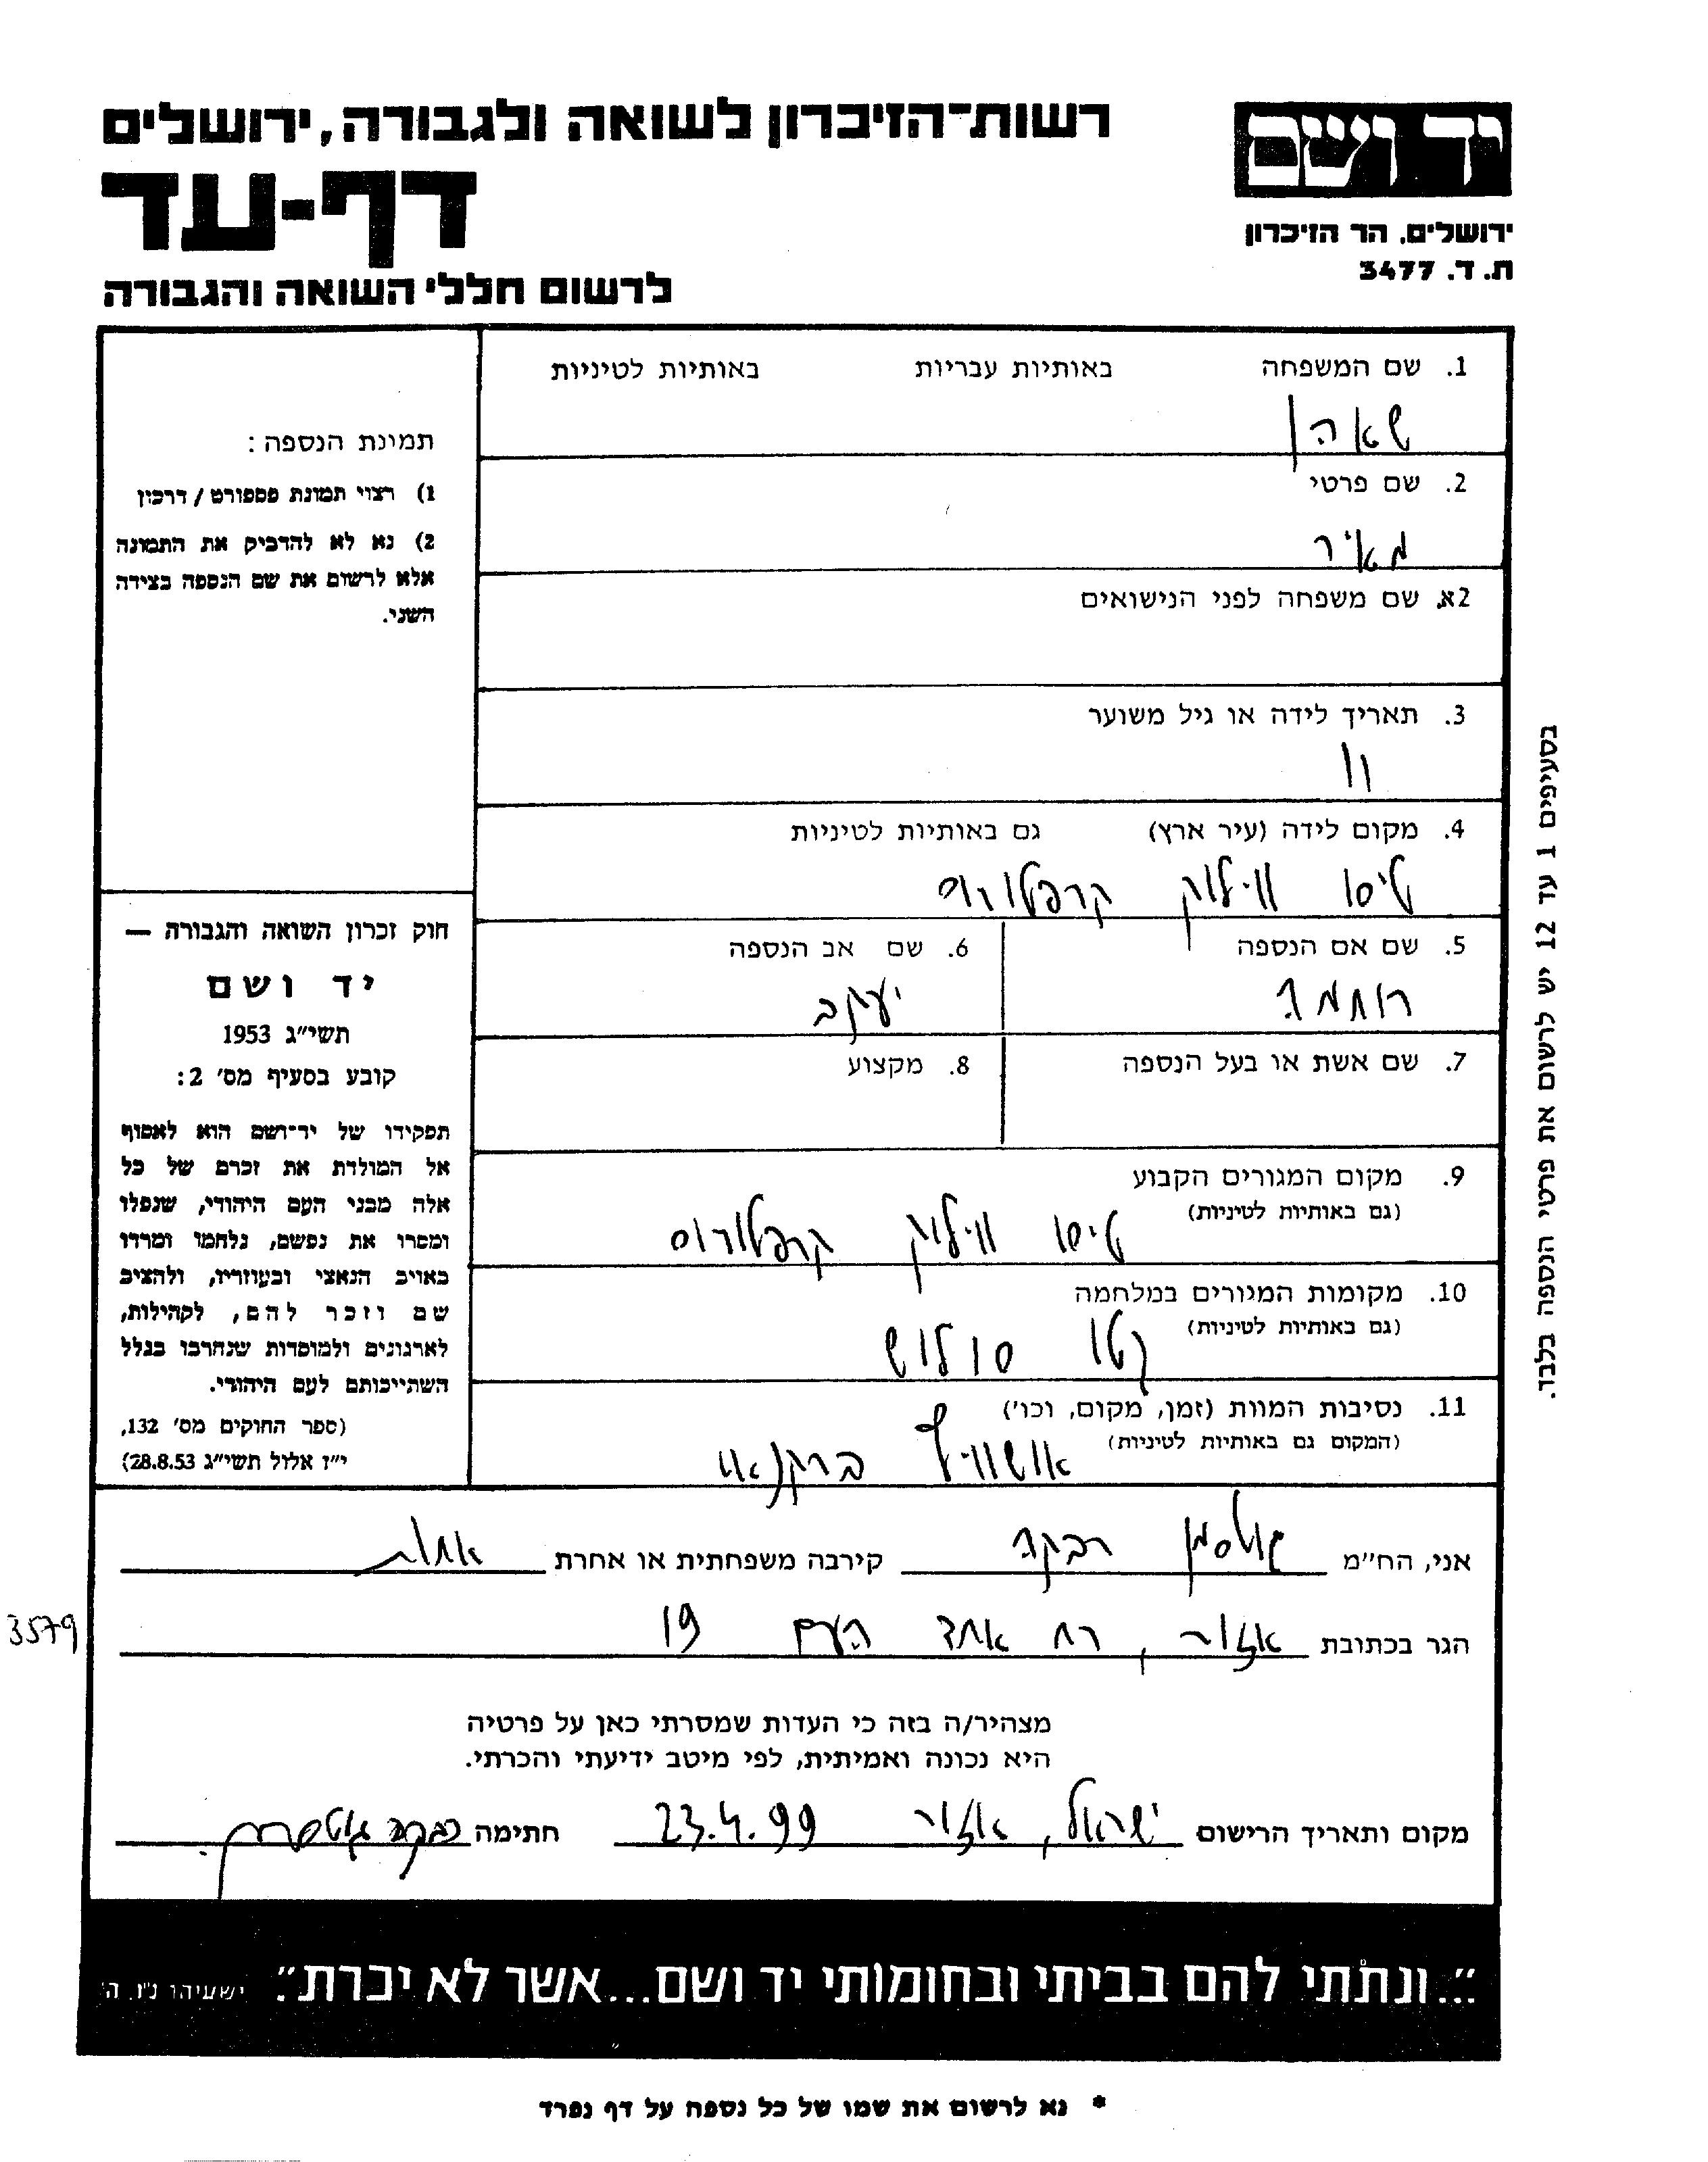 יד ושם
ירושלים. הר הזיכרון
ת. ד. 3477
רשות־הזיכרון לשואה ולגבורה, ירושלים
דף-עד
לרשום חללי השואה והגבורה
1. שם המשפחה באותיות עבריות באותיות לטיניות
שאהן
2. שם פרטי
מאיר
2א. שם משפחה לפני הנישואים
3. תאריך לידה או גיל משוער
11
4. מקום לידה (עיר ארץ) גם באותיות לטיניות
טיסו ווילוק קרפטורוס
5. שם אם הנספה
נוחמה
6. שם אב הנספה
יעקב
7. שם אשת או בעל הנספה
8. מקצוע
9. מקום המגורים הקבוע
(גם באותיות לטיניות)
טיסו ווילוק קרפטורוס
10. מקומות המגורים במלחמה
(גם באותיות לטיניות)
גטו סולוש
11. נסיבות המוות (זמן, מקום, וכו')
(המקום גם באותיות לטיניות)
אושוויץ בירקנאו
תמונת הנספה:
1) רצוי תמונת פספורט / דרכון
2) נא לא להדביק את התמונה
אלא לרשום את שם הנספה בצידה
השני.
חוק זכרון השואה והגבורה —
יד ושם
תשי״ג 1953
קובע בסעיף מס׳ 2:
תפקידו של יד־ושם הוא לאסוף
אל המולדת את זכרם של כל
אלה מבני העם היהודי, שנפלו
ומסרו את נפשם, נלחמו ומרדו
באויב הנאצי ובעוזריו, ולהציב
שם וזכר להם, לקהילות,
לארגונים ולמוסדות שנחרבו בגלל
השתייכותם לעם היהודי.
(ספר החוקים מס׳ 132,
י״ז אלול תשי״ג 28.8.53)
בסעיפים 1 עד 12 יש לרשום את פרטי הנספה בלבד.
אני, הח״מ גוטסמן רבקה קירבה משפחתית או אחרת אחות
הגר בכתובת אזור, רח אחד העם 19
3579
מצהיר/ה בזה כי העדות שמסרתי כאן על פרטיה
היא נכונה ואמיתית, לפי מיטב ידיעתי והכרתי.
מקום ותאריך הרישום ישראל, אזור 23.4.99 חתימה רבקה גוטסמן
״...ונתתי להם בביתי ובחומותי יד ושם...אשר לא יכרת״. ישעיהו נ״ו, ה׳
* נא לרשום את שמו של כל נספה על דף נפרד